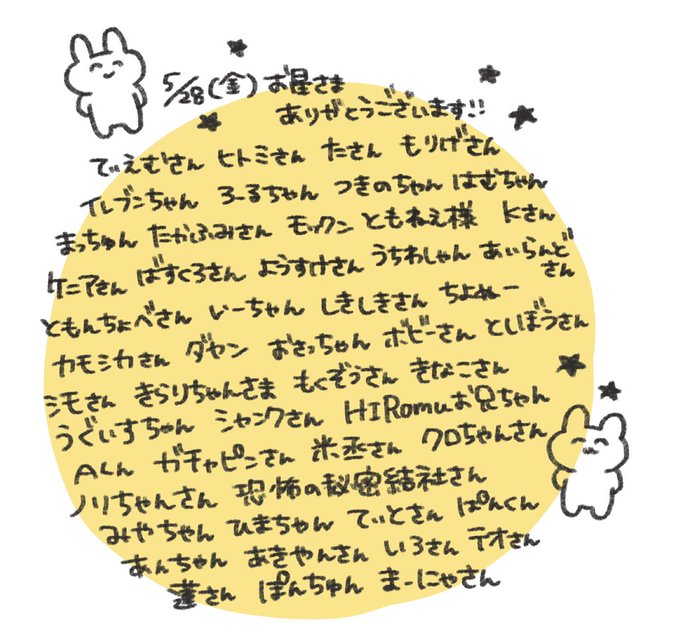 5/28(金) お星さま
ありがとうございます!!
でぃえむさん ヒトミさん たさん もりげさん
イレブンちゃん ろーるちゃん つきのちゃん はむちゃん
まっちゅん たかふみさん モックン ともねえ様 Kさん
ケニアさん ばすくろさん ようすけさん うちわしゃん あいらんどさん
ともんちょべさん いーちゃん しきしきさん ちよねー
カモシカさん ダヤン おさっちゃん ボビーさん としぼうさん
シモさん きらりちゃんさま もくぞうさん きなこさん
うぐぃすちゃん シャンクさん HIRomuお兄ちゃん
Aくん ガチャピンさん 米丞さん クロちゃんさん
ノリちゃんさん 恐怖の秘密結社さん
みやちゃん ひまちゃん てぃとさん ぱんくん
あんちゃん あきやんさん いろさん テオさん
蓮さん ぽんちゅん まーにゃさん